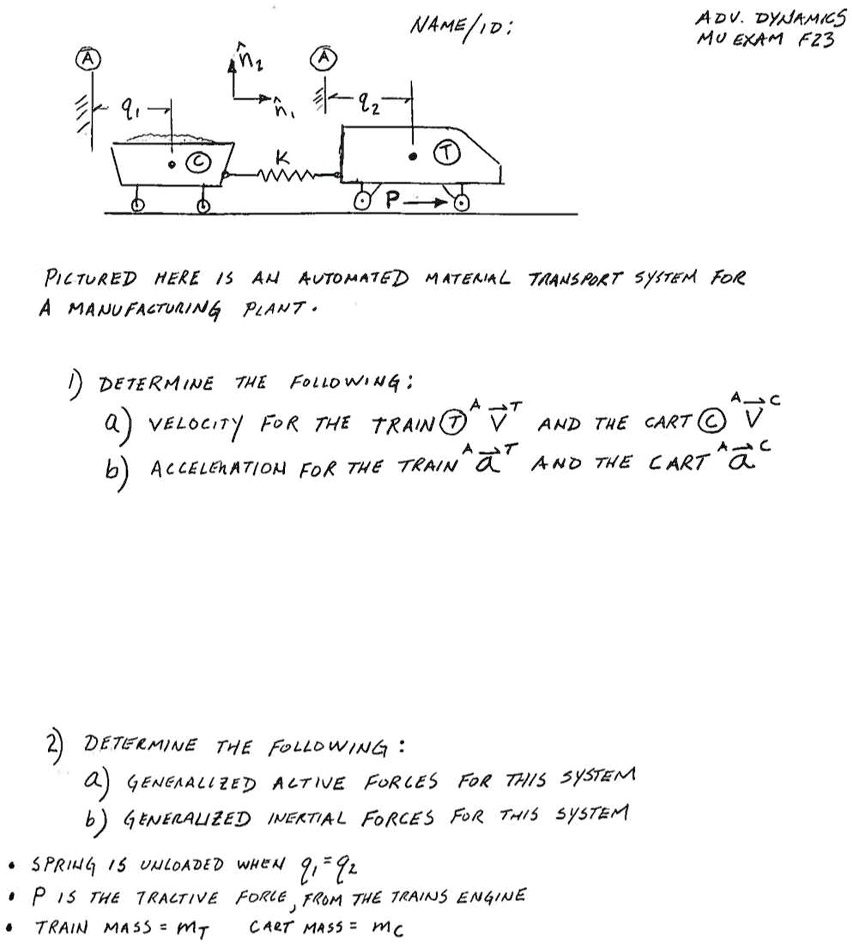 NAME/ID:
ADV. DYNAMICS
MU EXAM F23
A
n̂2
A
q1
n̂1
q2
C
K
T
P
PICTURED HERE IS AN AUTOMATED MATERIAL TRANSPORT SYSTEM FOR
A MANUFACTURING PLANT.
1) DETERMINE THE FOLLOWING:
a) VELOCITY FOR THE TRAIN Ⓣ ᴬV⃗ᵀ AND THE CART Ⓒ ᴬV⃗ᶜ
b) ACCELERATION FOR THE TRAIN ᴬa⃗ᵀ AND THE CART ᴬa⃗ᶜ
2) DETERMINE THE FOLLOWING:
a) GENERALIZED ACTIVE FORCES FOR THIS SYSTEM
b) GENERALIZED INERTIAL FORCES FOR THIS SYSTEM
• SPRING IS UNLOADED WHEN q1=q2
• P IS THE TRACTIVE FORCE, FROM THE TRAINS ENGINE
• TRAIN MASS = mT CART MASS = mC